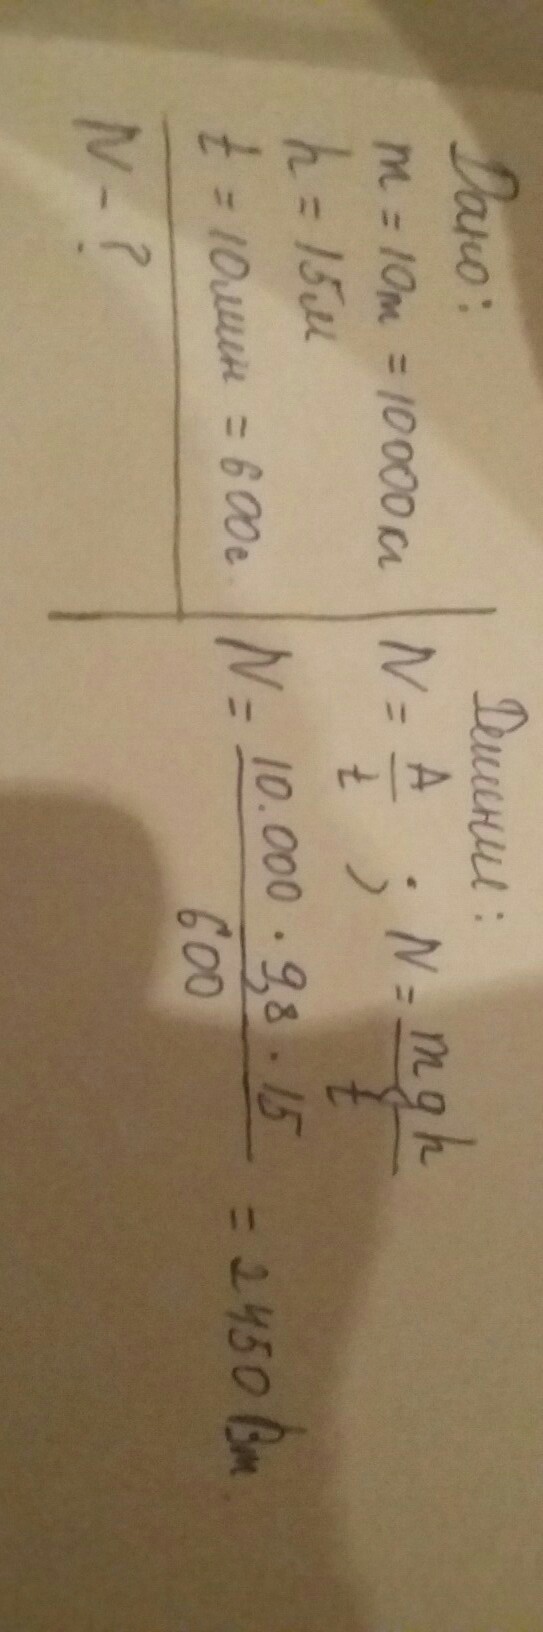 Дано:
m = 10т = 10000кг
h = 15м
t = 10мин = 600с.
N - ?
Решение:
N = A/t ; N = mgh/t
N = 10.000 · 9,8 · 15 / 600 = 2450 Вт.